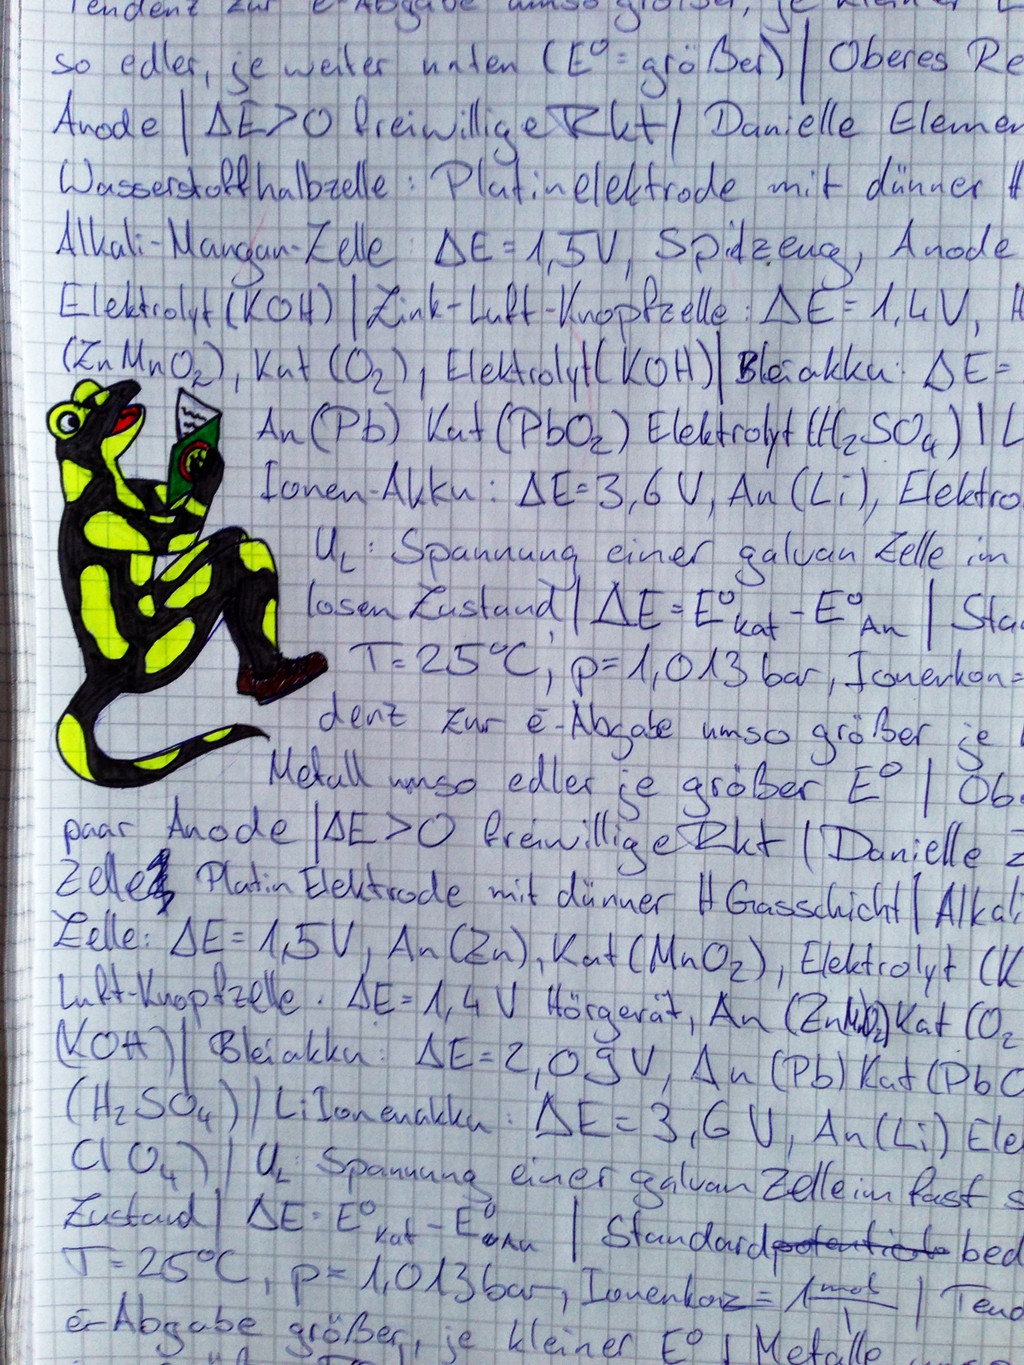 Tendenz zur e-Abgabe umso größer, je kleiner
so edler, je weiter unten (E⁰= größer) | Oberes Re
Anode | ΔE>0 freiwillige Rkt | Danielle Elemen
Wasserstoffhalbzelle : Platinelektrode mit dünner H
Alkali-Mangan-Zelle : ΔE = 1,5V, Spitzeug, Anode
Elektrolyt (KOH) | Zink-Luft-Knopfzelle : ΔE = 1,4V, H
(ZnMnO₂), Kat (O₂), Elektrolyt (KOH) | Bleiakku: ΔE =
An (Pb) Kat (PbO₂) Elektrolyt (H₂SO₄) | L
Ionen-Akku : ΔE=3,6V, An (Li), Elektro
U_L : Spannung einer galvan Zelle im
losen Zustand | ΔE = E⁰Kat - E⁰An | Sta
T=25°C, p=1,013 bar, Ionenkon=
denz zur e⁻-Abgabe umso größer je
Metall umso edler je größer E⁰ | Ob
paar Anode | ΔE>0 freiwillige Rkt | Danielle Z
Zelle Platin Elektrode mit dünner H Gasschicht | Alkali
Zelle: ΔE = 1,5V, An (Zn), Kat (MnO₂), Elektrolyt (K
Luft-Knopfzelle. ΔE = 1,4V Hörgerät, An (ZnMnO₂) Kat (O₂
(KOH) | Bleiakku: ΔE = 2,09V, An (Pb) Kat (PbO
(H₂SO₄) | Li Ionenakku : ΔE = 3,6V, An (Li) Ele
ClO₄) | U_L : Spannung einer galvan Zelle im fast s
Zustand | ΔE = E⁰Kat - E⁰An | Standardpotential bed
T=25°C, p=1,013 bar, Ionenkonz = 1 mol/l | Tend
e⁻-Abgabe größer, je kleiner E⁰ | Metalle